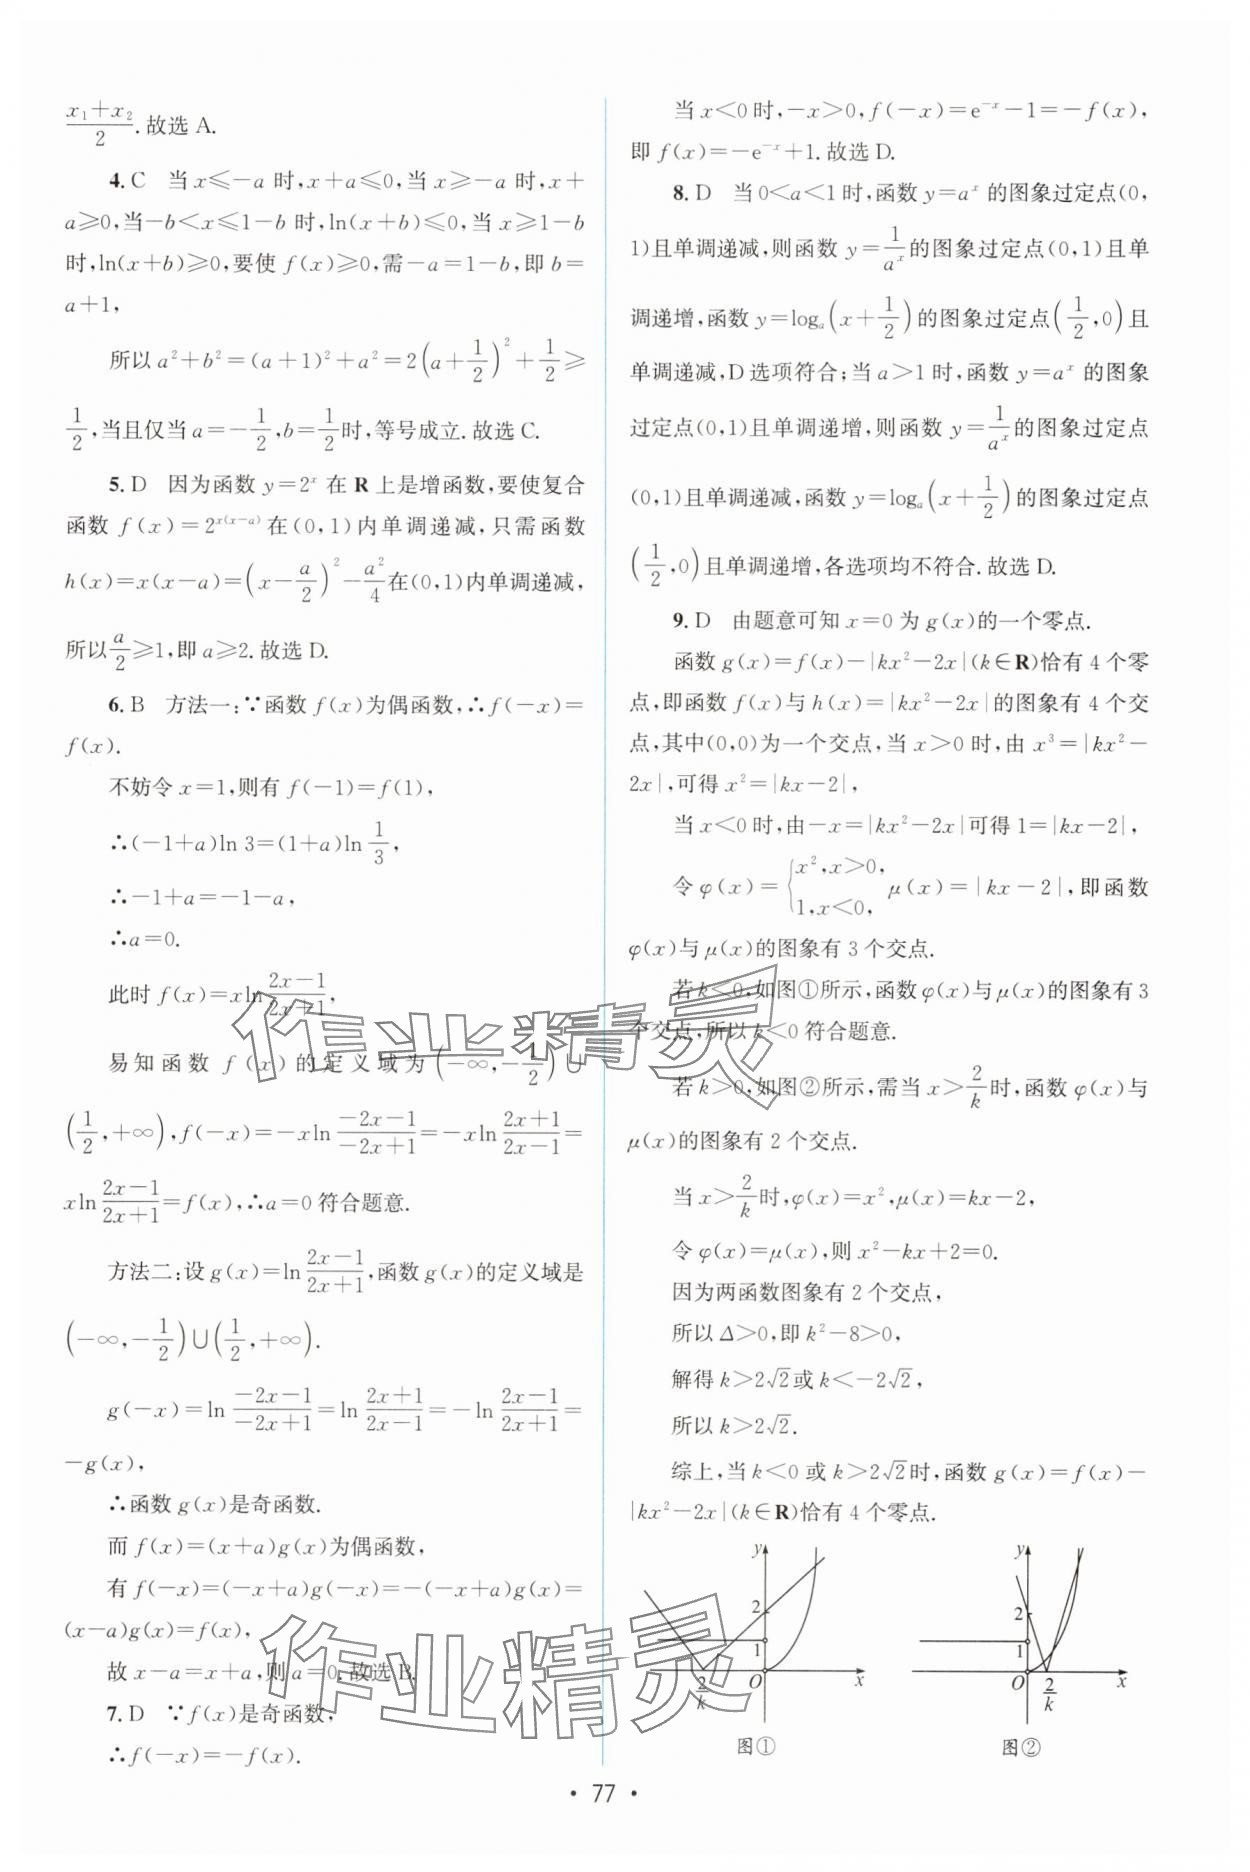 x₁+x₂/2.故选 A.
4. C　当 x≤−a 时,x+a≤0,当 x≥−a 时,x+
a≥0,当−b<x≤1−b 时,ln(x+b)≤0,当 x≥1−b
时,ln(x+b)≥0,要使 f(x)≥0,需−a=1−b,即 b=
a+1,
所以 a²+b²=(a+1)²+a²=2(a+1/2)²+1/2≥
1/2,当且仅当 a=−1/2,b=1/2时,等号成立.故选C.
5. D　因为函数 y=2ˣ 在 R 上是增函数,要使复合
函数 f(x)=2^{x(x−a)}在(0,1)内单调递减,只需函数
h(x)=x(x−a)=(x−a/2)²−a²/4在(0,1)内单调递减,
所以a/2≥1,即 a≥2.故选 D.
6. B　方法一:∵函数 f(x)为偶函数,∴f(−x)=
f(x).
不妨令 x=1,则有 f(−1)=f(1),
∴(−1+a)ln 3=(1+a)ln 1/3,
∴−1+a=−1−a,
∴a=0.
此时 f(x)=xln (2x−1)/(2x+1),
易知函数 f(x)的定义域为(−∞,−1/2)∪
(1/2,+∞),f(−x)=−xln (−2x−1)/(−2x+1)=−xln (2x+1)/(2x−1)=
xln (2x−1)/(2x+1)=f(x),∴a=0 符合题意.
方法二:设 g(x)=ln (2x−1)/(2x+1),函数 g(x)的定义域是
(−∞,−1/2)∪(1/2,+∞).
g(−x)=ln (−2x−1)/(−2x+1)=ln (2x+1)/(2x−1)=−ln (2x−1)/(2x+1)=
−g(x),
∴函数 g(x)是奇函数.
而 f(x)=(x+a)g(x)为偶函数,
有 f(−x)=(−x+a)g(−x)=−(−x+a)g(x)=
(x−a)g(x)=f(x),
故 x−a=x+a,则 a=0.故选 B.
7. D　∵f(x)是奇函数,
∴f(−x)=−f(x).
当 x<0 时,−x>0,f(−x)=e⁻ˣ−1=−f(x),
即 f(x)=−e⁻ˣ+1.故选 D.
8. D　当 0<a<1 时,函数 y=aˣ 的图象过定点(0,
1)且单调递减,则函数 y=1/aˣ的图象过定点(0,1)且单
调递增,函数 y=logₐ(x+1/2)的图象过定点(1/2,0)且
单调递减,D 选项符合;当 a>1 时,函数 y=aˣ 的图象
过定点(0,1)且单调递增,则函数 y=1/aˣ的图象过定点
(0,1)且单调递减,函数 y=logₐ(x+1/2)的图象过定点
(1/2,0)且单调递增,各选项均不符合.故选 D.
9. D　由题意可知 x=0 为 g(x)的一个零点.
函数 g(x)=f(x)−|kx²−2x|(k∈R)恰有 4 个零
点,即函数 f(x)与 h(x)=|kx²−2x|的图象有 4 个交
点,其中(0,0)为一个交点,当 x>0 时,由 x³=|kx²−
2x|,可得 x²=|kx−2|,
当 x<0 时,由−x=|kx²−2x|可得 1=|kx−2|,
令 φ(x)={x²,x>0, 1,x<0, μ(x)=|kx−2|,即函数
φ(x)与 μ(x)的图象有 3 个交点.
若 k<0,如图①所示,函数 φ(x)与 μ(x)的图象有 3
个交点,所以 k<0 符合题意.
若 k>0,如图②所示,需当 x>2/k时,函数 φ(x)与
μ(x)的图象有 2 个交点.
当 x>2/k时,φ(x)=x²,μ(x)=kx−2,
令 φ(x)=μ(x),则 x²−kx+2=0.
因为两函数图象有 2 个交点,
所以 Δ>0,即 k²−8>0,
解得 k>2√2或 k<−2√2,
所以 k>2√2.
综上,当 k<0 或 k>2√2时,函数 g(x)=f(x)−
|kx²−2x|(k∈R)恰有 4 个零点.
y
2
1
2/k
O
x
图①
y
2
1
O
2/k
x
图②
· 77 ·
作业精灵
作业精灵